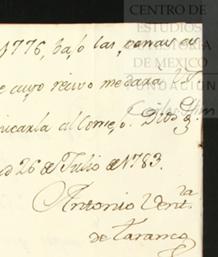 CENTRO DE
ESTUDIOS
DE MEXICO
FUNDACION
1776, bajo las penas
de cuyo recivo me dara V
nicarla al Consejo. Dios g.
26 de Julio de 1783.
Antonio Vent.ra
de Taranco